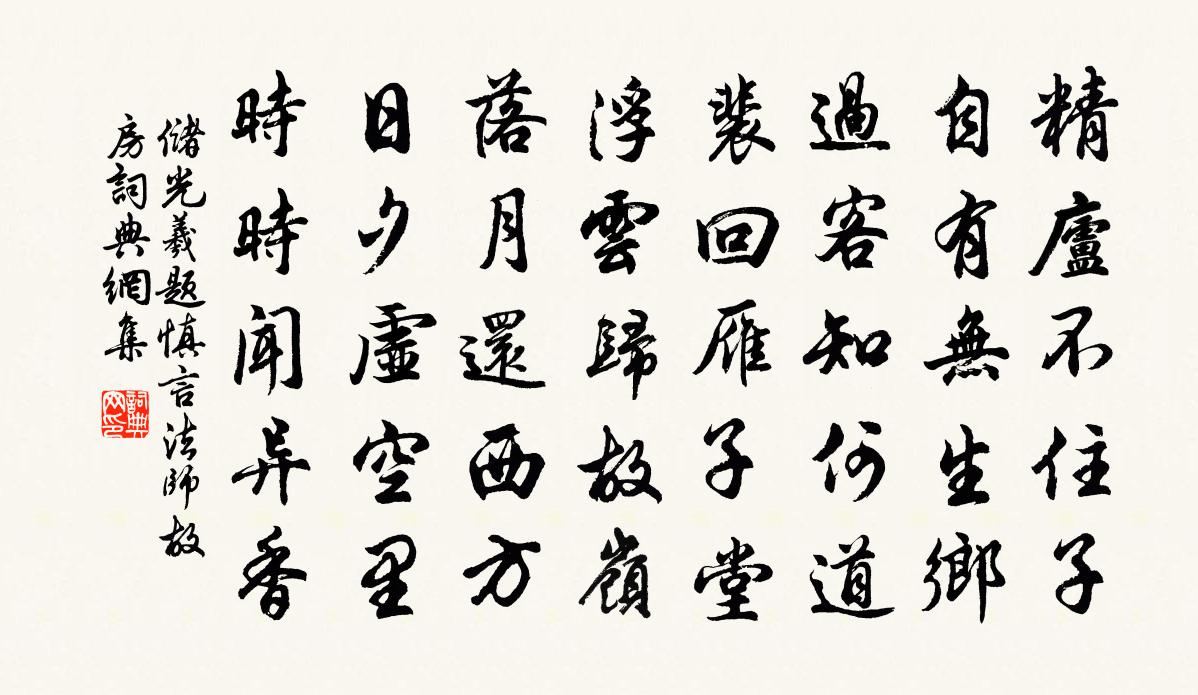 精廬不住子
自有無生鄉
過客知何道
裴回雁子堂
浮雲歸故嶺
落月還西方
日夕虛空里
時時闻异香
儲光羲題慎言法師故
房詞典網集
詞典网印